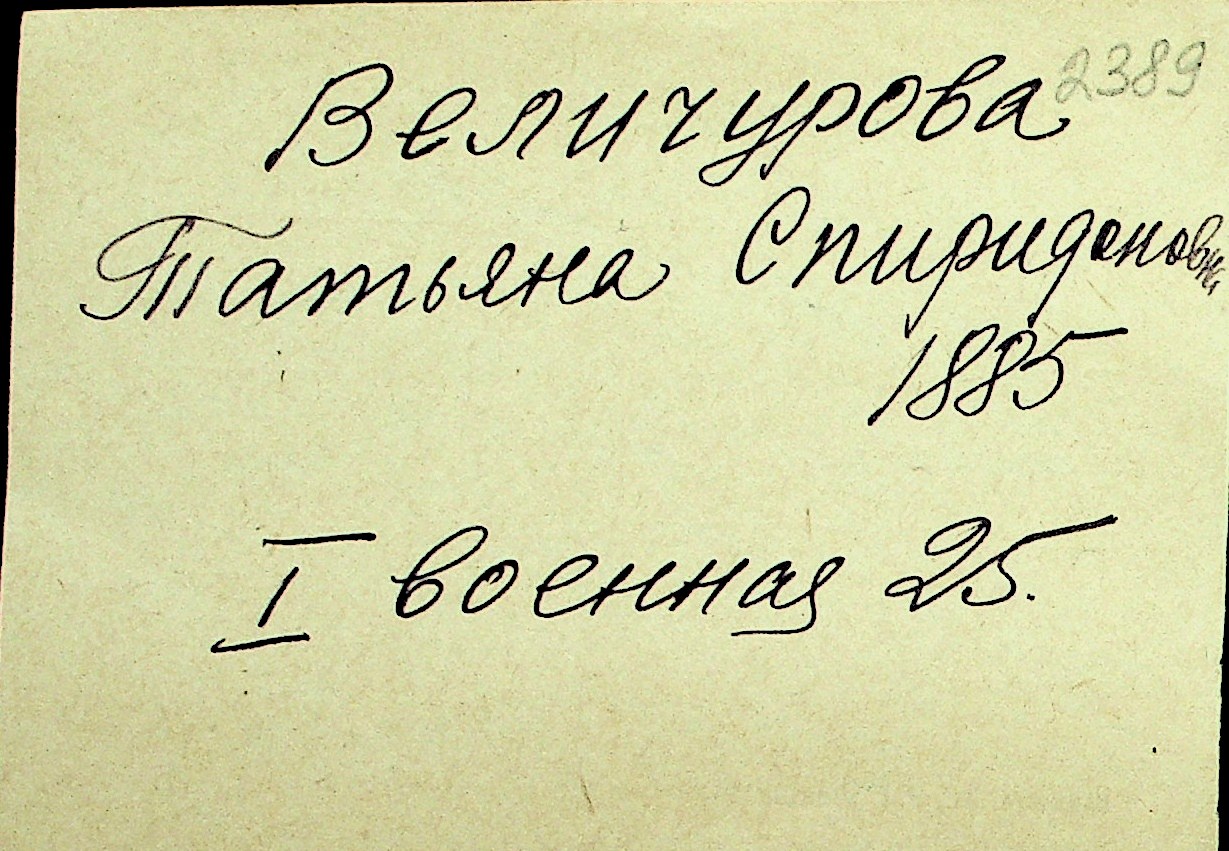 Величурова 2389
Татьяна Спиридоновна
1885
I военная 25.